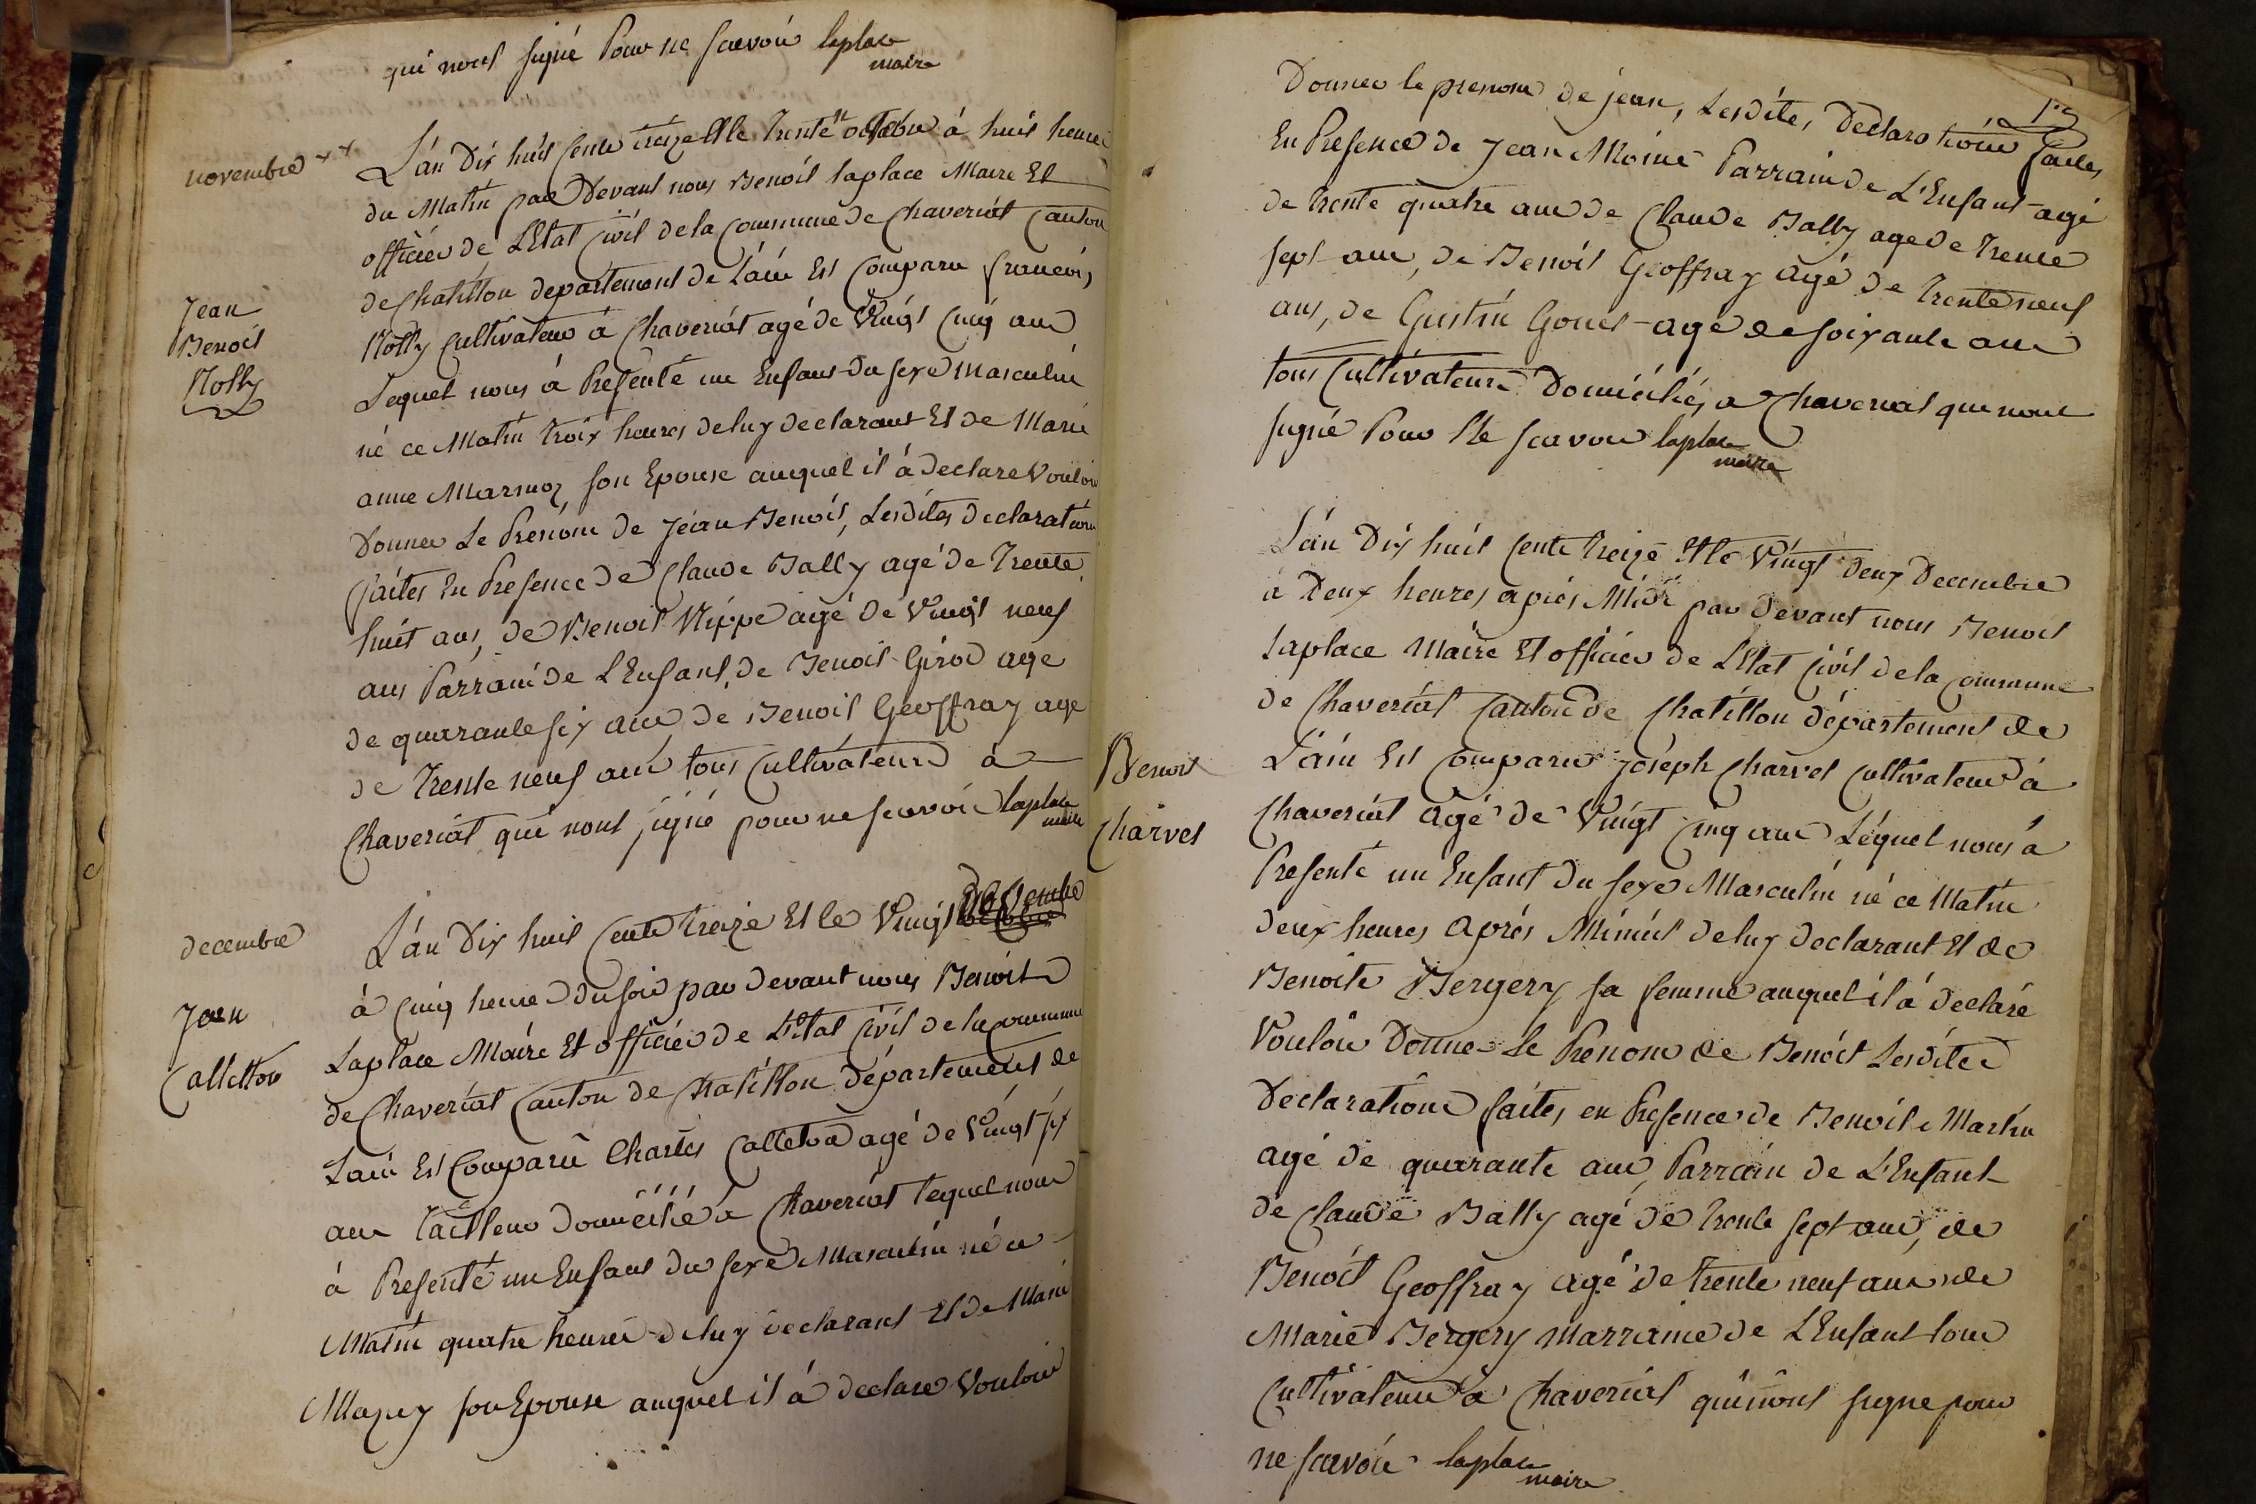 qui nont signé Pour ne scavoir laplace
maire
novembre
L'an Dix huit Cents treize Et le trente octobre à huit heures
du Matin par Devant nous Benoit laplace Maire Et
officier de L'Etat Civil de la Commune de Chaveriat Canton
de Chatillon departement de L'ain Est Comparu francois
Jean
Benoit
Nolly
Nolly Cultivateur à Chaveriat agé de Vingt Cinq ans
Lequel nous à Presenté un Enfant Du sexe Masculin
né ce Matin troix heures de luy declarant Et de Marie
anne Marmoz son Epouse auquel il à declare Vouloir
Donner Le Prenom de Jean Benoit, Lesdites declarations
faites En Presence de Claude Bally agé de Trente
huit ans, de Benoit Nippe agé de Vingt neuf
ans Parrain de L'Enfant, de Benoit Girod age
de quarante six ans, de Benoit Geoffray age
de Trente neuf ans tous Cultivateurs à
Chaveriat qui nont signé pour ne scavoir laplace
maire
decembre
L'an Dix huit Cents treize Et le Vingt Decembre
à Cinq heures du soir par devant nous Benoit
Jean
Calleton
Laplace Maire Et officier de L'Etat Civil de la Commune
de Chaveriat Canton de Chatillon département de
Lain Est Comparu Charles Calleton agé de Vingt six
ans Tailleur Domicilié à Chaveriat lequel nous
à Presenté un Enfant Du sexe Masculin né ce
Matin quatre heures de luy declarant Et de Marie
Mazuy son Epouse auquel il à declare Vouloir
13
Donner le prenom de jean, Lesdites Declarations faites
En Presence de Jean Moine Parrain de L'Enfant agé
de trente quatre ans de Claude Bally age de Trente
sept ans, de Benoit Geoffray Agé de Trente neuf
ans, de Gustin Gonet agé de soixante ans
tous Cultivateurs Domiciliés a Chaveriat qui nont
signé Pour Ne scavoir laplace
maire
L'an Dix huit Cents treize Et le Vingt deux Decembre
à Deux heures après Midi par devant nous Benoit
Laplace Maire Et officier de L'Etat Civil de la Commune
de Chaveriat Canton de Chatillon département de
Benoit
Charvet
L'ain Est Comparu joseph Charvet Cultivateur à
Chaveriat Agé de Vingt Cinq ans Lequel nous à
Presenté un Enfant Du sexe Masculin né ce Matin
deux heures Après Minuit de luy declarant Et de
Benoite Bergery sa femme auquel il à declaré
Vouloir Donner le Prenom de Benoit Lesdites
Declarations faites en Presence de Benoit Martin
agé de quarante ans, Parrain de L'Enfant
de Claude Bally agé de Trente sept ans, de
Benoit Geoffray agé de trente neuf ans de
Marie Bergery marraine de L'Enfant tous
Cultivateurs à Chaveriat qui nont signe pour
ne scavoir laplace
maire